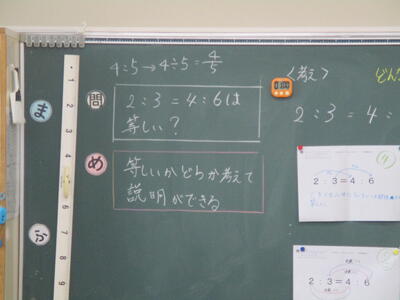 4:5→4÷5=4/5
問
2:3=4:6は
等しい?
め
等しいかどうか考えて
説明ができる
ま
ふ
1
2
3
4
5
6
7
8
9
<考え>
どん
2:3=4:
2:3=4:6
2:3=4:6